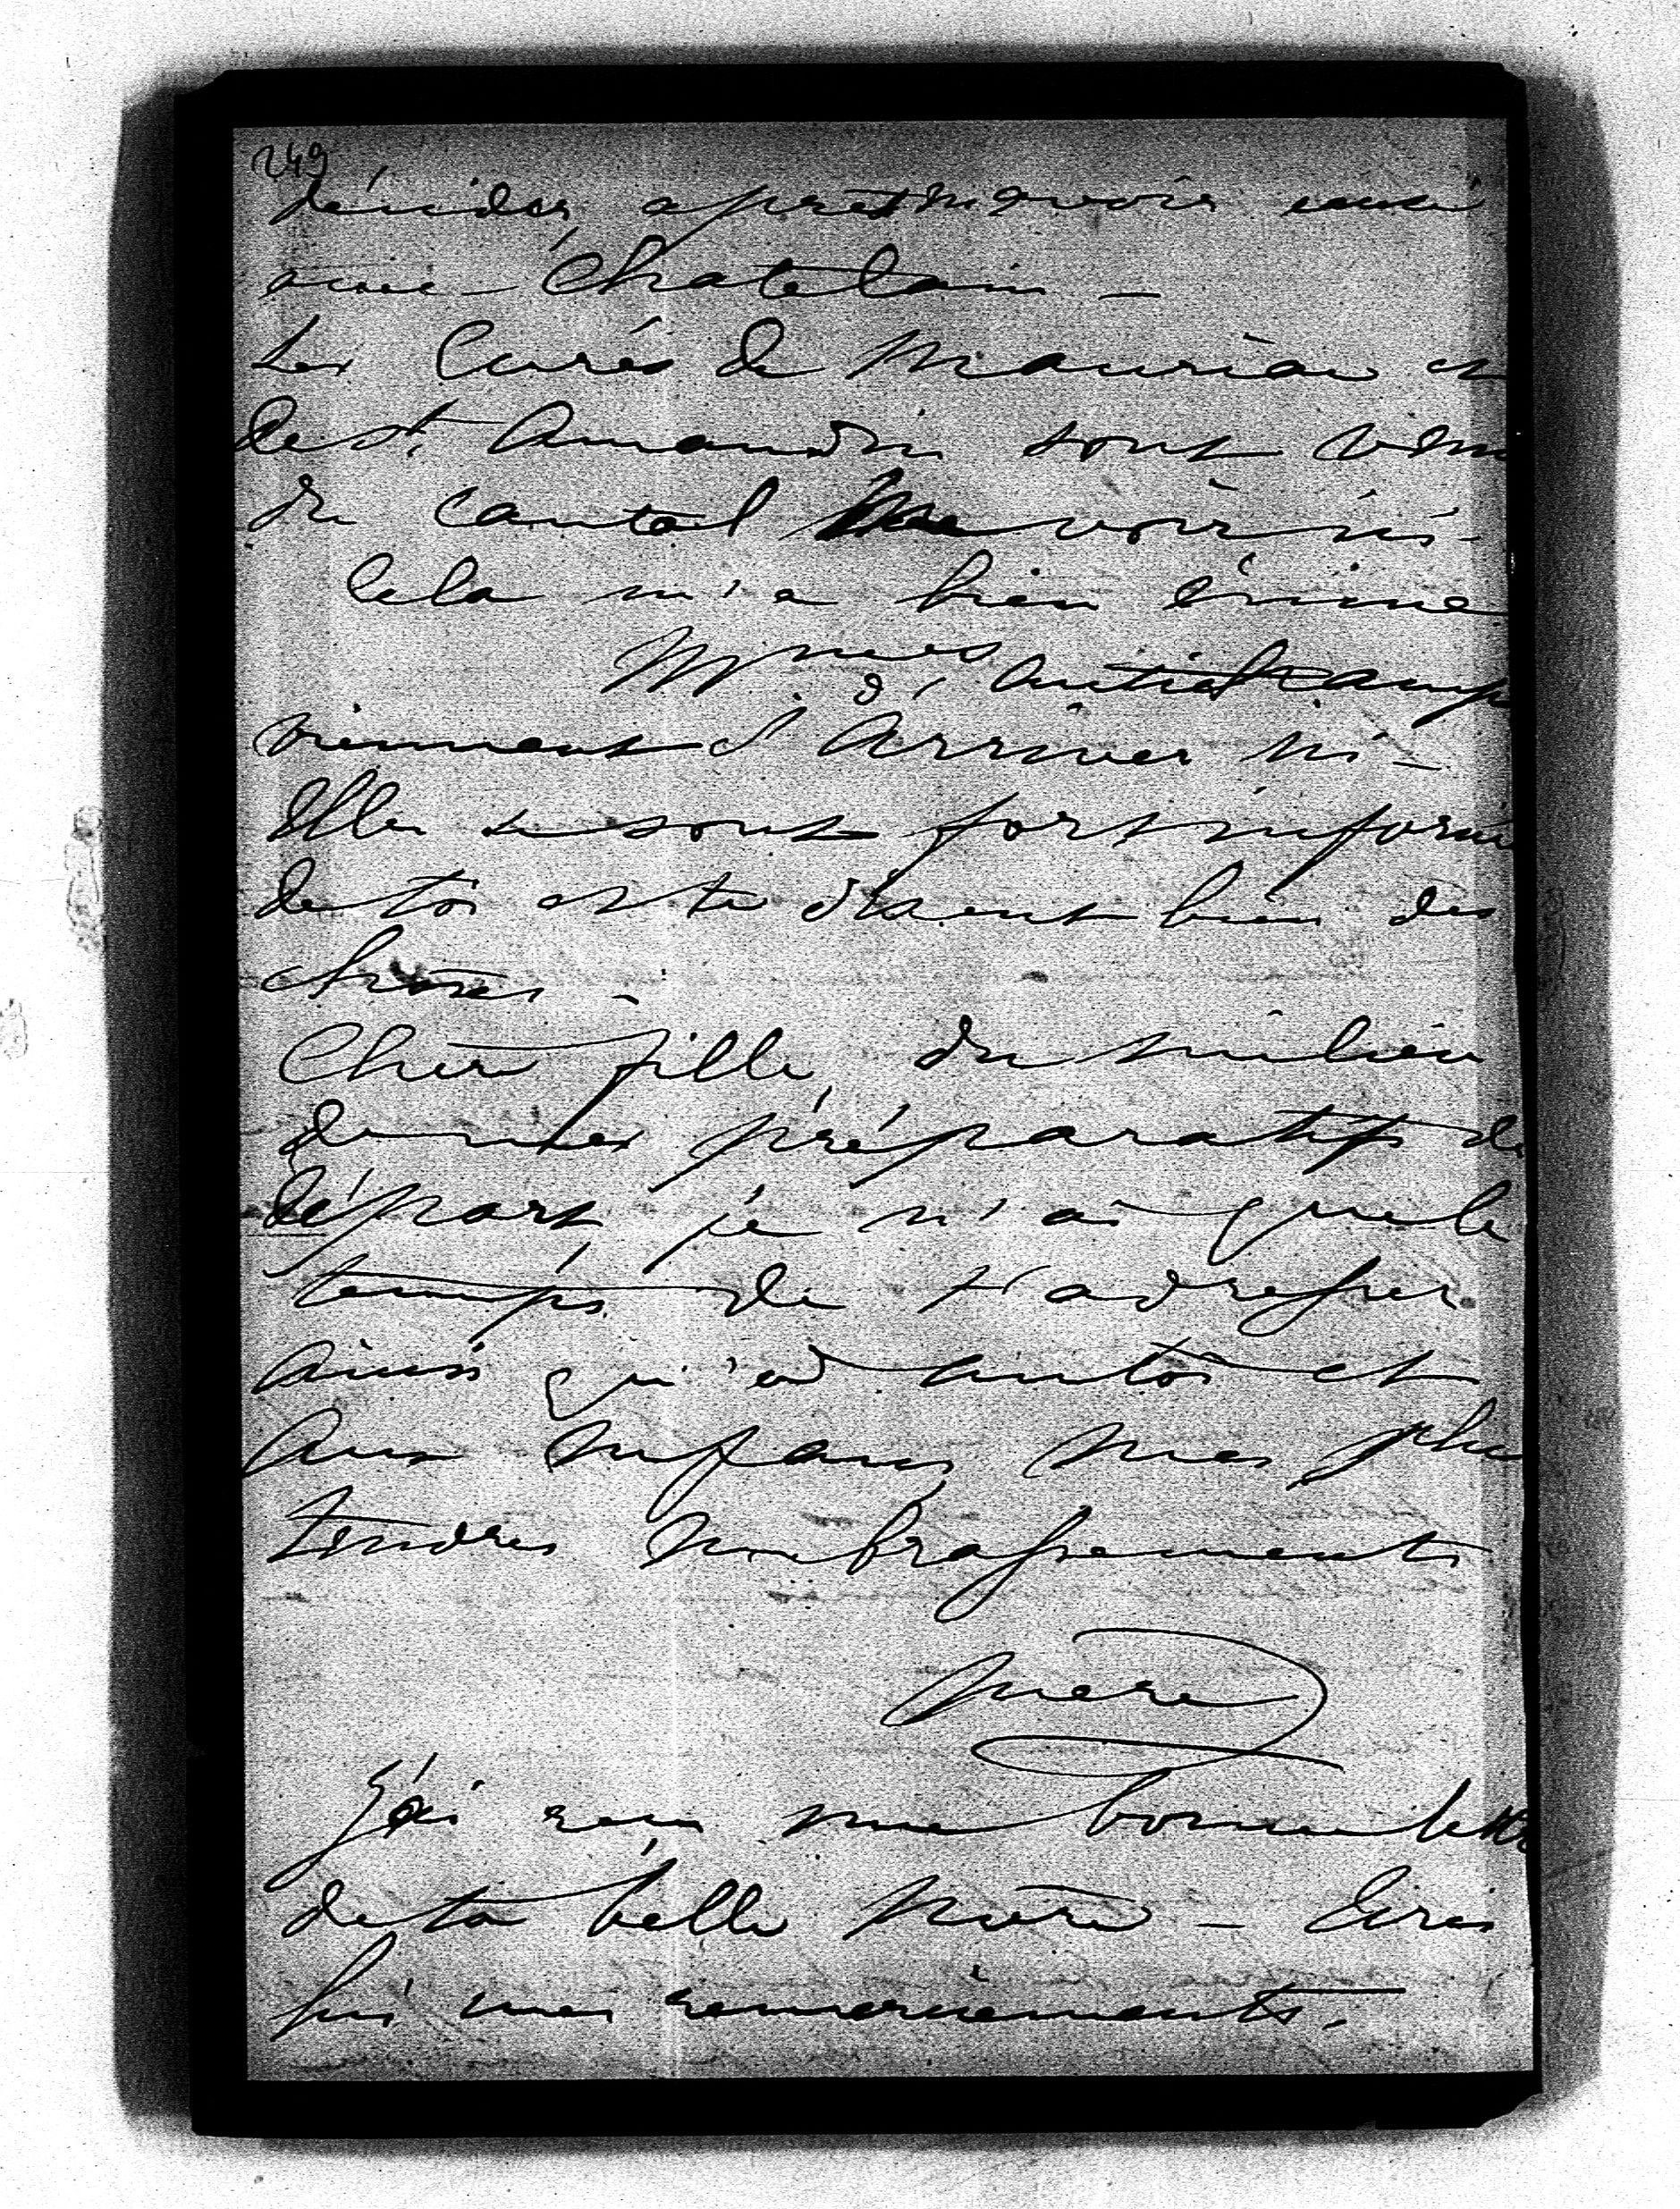 249
décider après m'avoir
avec Chatelain —
Les Curés de Mauriac et
de St Amandin sont venus
du Cantal me voir ici -
Cela m'a bien émue
Mmes d'Autichamp
viennent d'arriver ici —
Elles se sont fort informé
de toi et te disent bien des
choses -
Chère fille, du milieu
de mes préparatifs de
départ, je n'ai que le
temps de t'adresser
ainsi qu'à et
aux enfans, mes plus
tendres embrassements
Mere
J'ai reçu une bonne lettre
de ta belle Mère —
lui mes remerciements.